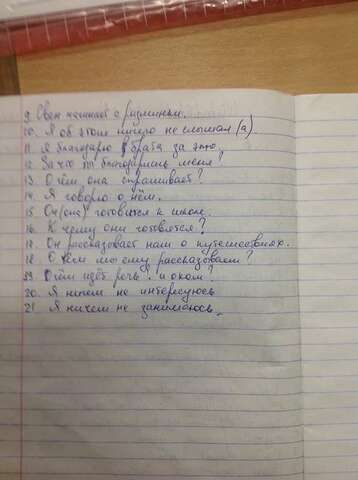 9. Свен начинает с разминки.
10. Я об этом ничего не слышал (а).
11. Я благодарю брата за это.
12. За что ты благодаришь меня?
13. О чём она спрашивает?
14. Я говорю о нём.
15. Он(она) готовится к школе.
16. К чему они готовятся?
17. Он рассказывает нам о путешествиях.
18. О ком мы ему рассказываем?
19. О чём идёт речь? и о ком?
20. Я ничем не интересуюсь
21 Я ничем не занимаюсь.